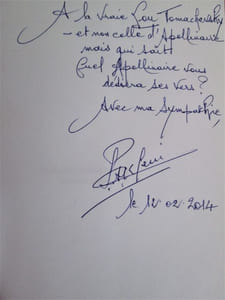 A la vraie Lou Tomachevsky
– et non celle d'Apollinaire
mais qui sait
Quel Apollinaire vous
dédiera ses vers ?
Avec ma sympathie,
le 12.02.2014